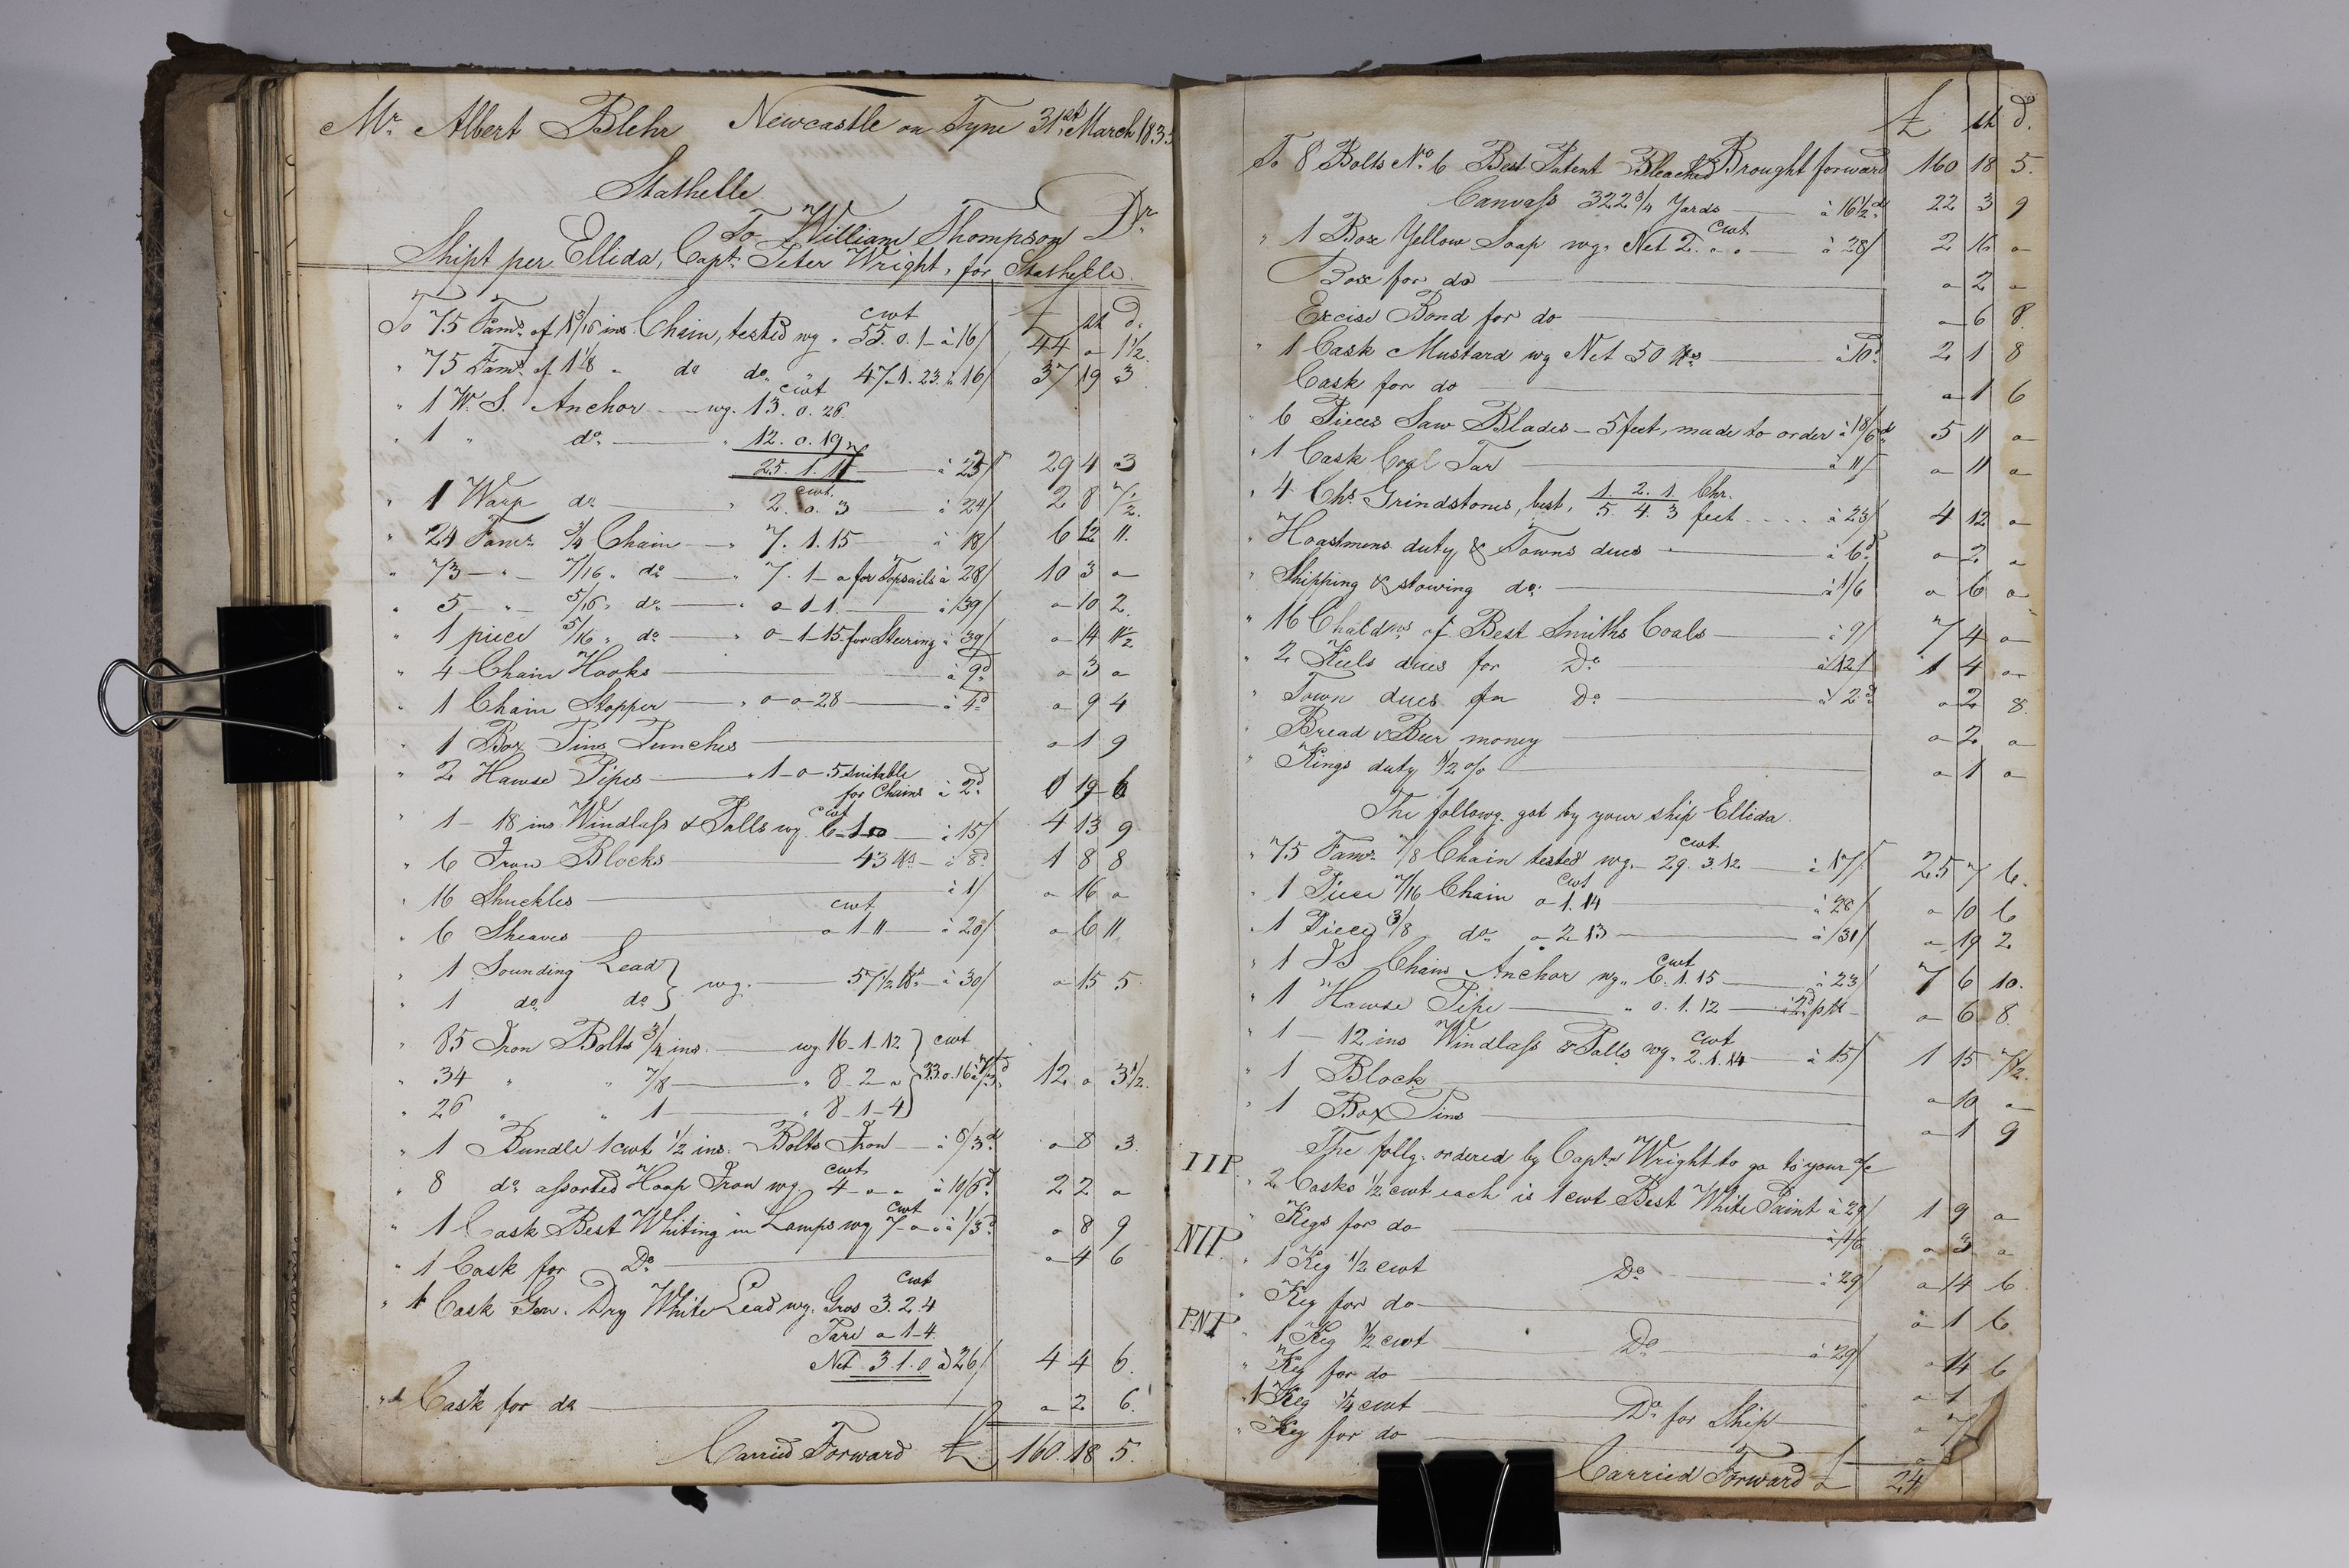 Mr. Albert Blehr Newcastle on Tyne 31st March 183
Stathelle
To William Thompson Dr.
Shipt per Ellida, Captn. Peter Wright, for Stathelle.
£ sh d.
To 75 Fams. of 1 3/16 ins. Chain, tested wg. cwt 55. 0. 1 - à 16/ 44 " 1½.
" 75 Fams. of 1 1/8 " do do. " 47. 1. 23. à 16/ 37 19 3
" 1 W. S. Anchor wg. cwt 13. 0. 26.
" 1 " do. " 12. 0. 19
25. 1. 17 à 23/ 29 4 3
" 1 Warp do " cwt. 2. 0. 3 à 24/ 2 8 7½.
" 24 Fams. ¾ Chain " 7. 1. 15 à 18/ 6 12 11.
" 73 " 7/16 " do " 7. 1 - o for Topsails à 28/ 10 3 o
" 5 " 5/16 " do. " o - 1 - 1 à /39/ o 10 2.
" 1 piece 5/16 " do " 0 - 1 - 15 for Steering à 39/ o 14 11½
" 4 Chain Hooks à 9d. o 3 o
" 1 Chain Stopper " o - o - 28 à 4d o 9 4
" 1 Box Pins Punches o 1 9
" 2 Hawse Pipes " 1 - o - 5 suitable
for Chains à 2d. 0 19 6
" 1 - 18 ins. Windlass & Palls wg. cwt 6 - 1 - o à 15/ 4 13 9
" 6 Iron Blocks 43 lbs à 8d 1 8 8
" 16 Shuckles à 1/ o 16 o
" 6 Sheaves cwt o 1 11 à 20/ o 6 11
" 1 Sounding Lead
" 1 do. do. } wg. 57½ lbs. à 30/ o 15 5
" 85 Iron Bolts ¾ ins. wg. 16 - 1 - 12 } cwt
" 34 " " 7/8 " 8 - 2 - o } 33. 0. 16 à 7/3d 12 o 3½.
" 26 " " 1 " 8 - 1 - 4 }
" 1 Bundle 1 cwt ½ ins. Bolts Iron à 8/3d o 8 3.
" 8 do. assorted Hoop Iron wg. cwt 4 - o o à 10/6d. 2 2 o
" 1 Cask Best Whiting in Lamps wg cwt 7 - o o à 1/3d o 8 9
" 1 Cask for Do o 4 6
" 1 Cask Gen. Dry White Lead wg. Gros cwt 3. 2. 4
Tare o 1 - 4
Net 3. 1. 0 à 26/ 4 4 6.
" 1 Cask for do o 2 6.
Carried Forward £ 160. 18 5.
£ sh d.
To 8 Bolts No. 6 Best Patent Bleached Brought forward 160 18 5.
Canvass 322¾ Yards à 16½d. 22 3 9
" 1 Box Yellow Soap wg. Net cwt 2. o. o à 28/ 2 16 o
Box for do o 2 o
Excise Bond for do o 6 8.
" 1 Cask Mustard wg Net 50 lbs à 10d. 2 1 8
Cask for do o 1 6
" 6 Pieces Saw Blades - 5 feet, made to order à 18/6d. 5 11 o
" 1 Cask Coal Tar à 11/ o 11 o
" 4 Chs. Grindstones, best, 1. 2. 1 Chr.
5. 4. 3 feet à 23/ 4 12 o
" Hoastmens duty & Towns dues à 6d. o 2 o
" Shipping & stowing do. à 1/6 o 6 o
" 16 Chaldns. of Best Smiths Coals à 9/ 7 4 o
" 2 Keels dues for Do à 12/ 1 4 o
" Town dues for Do à 2d o 2 8.
" Bread & Beer money o 2 o
" Kings duty ½ % o 1 o
The followg. got by your ship Ellida.
" 75 Fams. 7/8 Chain tested wg. cwt 29. 3. 12 à 17/ 25 7 6.
" 1 Piece 7/16 Chain cwt o - 1. 14 à 28/ o 10 6
" 1 Piece 3/8 do. o - 2 - 13 à /31/ o 19 2.
" 1 Chain Anchor wg. cwt 6. 1. 15 à 23/ 7 6 10.
" 1 Hawse Pipe " 0. 1. 12 à 2d p lb o 6 8.
" 1 - 12 ins Windlass & Palls wg. cwt 2. 1. 14 à 15/ 1 15 7½.
" 1 Block o 10 o
" 1 Box Pins o 1 9
The follg. ordered by Captn. Wright to go to your a/c
IIP. " 2 Casks ½ cwt each is 1 cwt Best White Paint à 29/ 1 9 o
" Kegs for do à 1/6 o 3 o
NIP. " 1 Keg ½ cwt Do à 29/ o 14 6
" Keg for do o 1 6
PNP. " 1 Keg ½ cwt Do à 29/ o 14 6
" Keg for do o 1
" 1 Keg ¼ cwt Do for Ship o 7
" Keg for do
Carried Forward £ 24